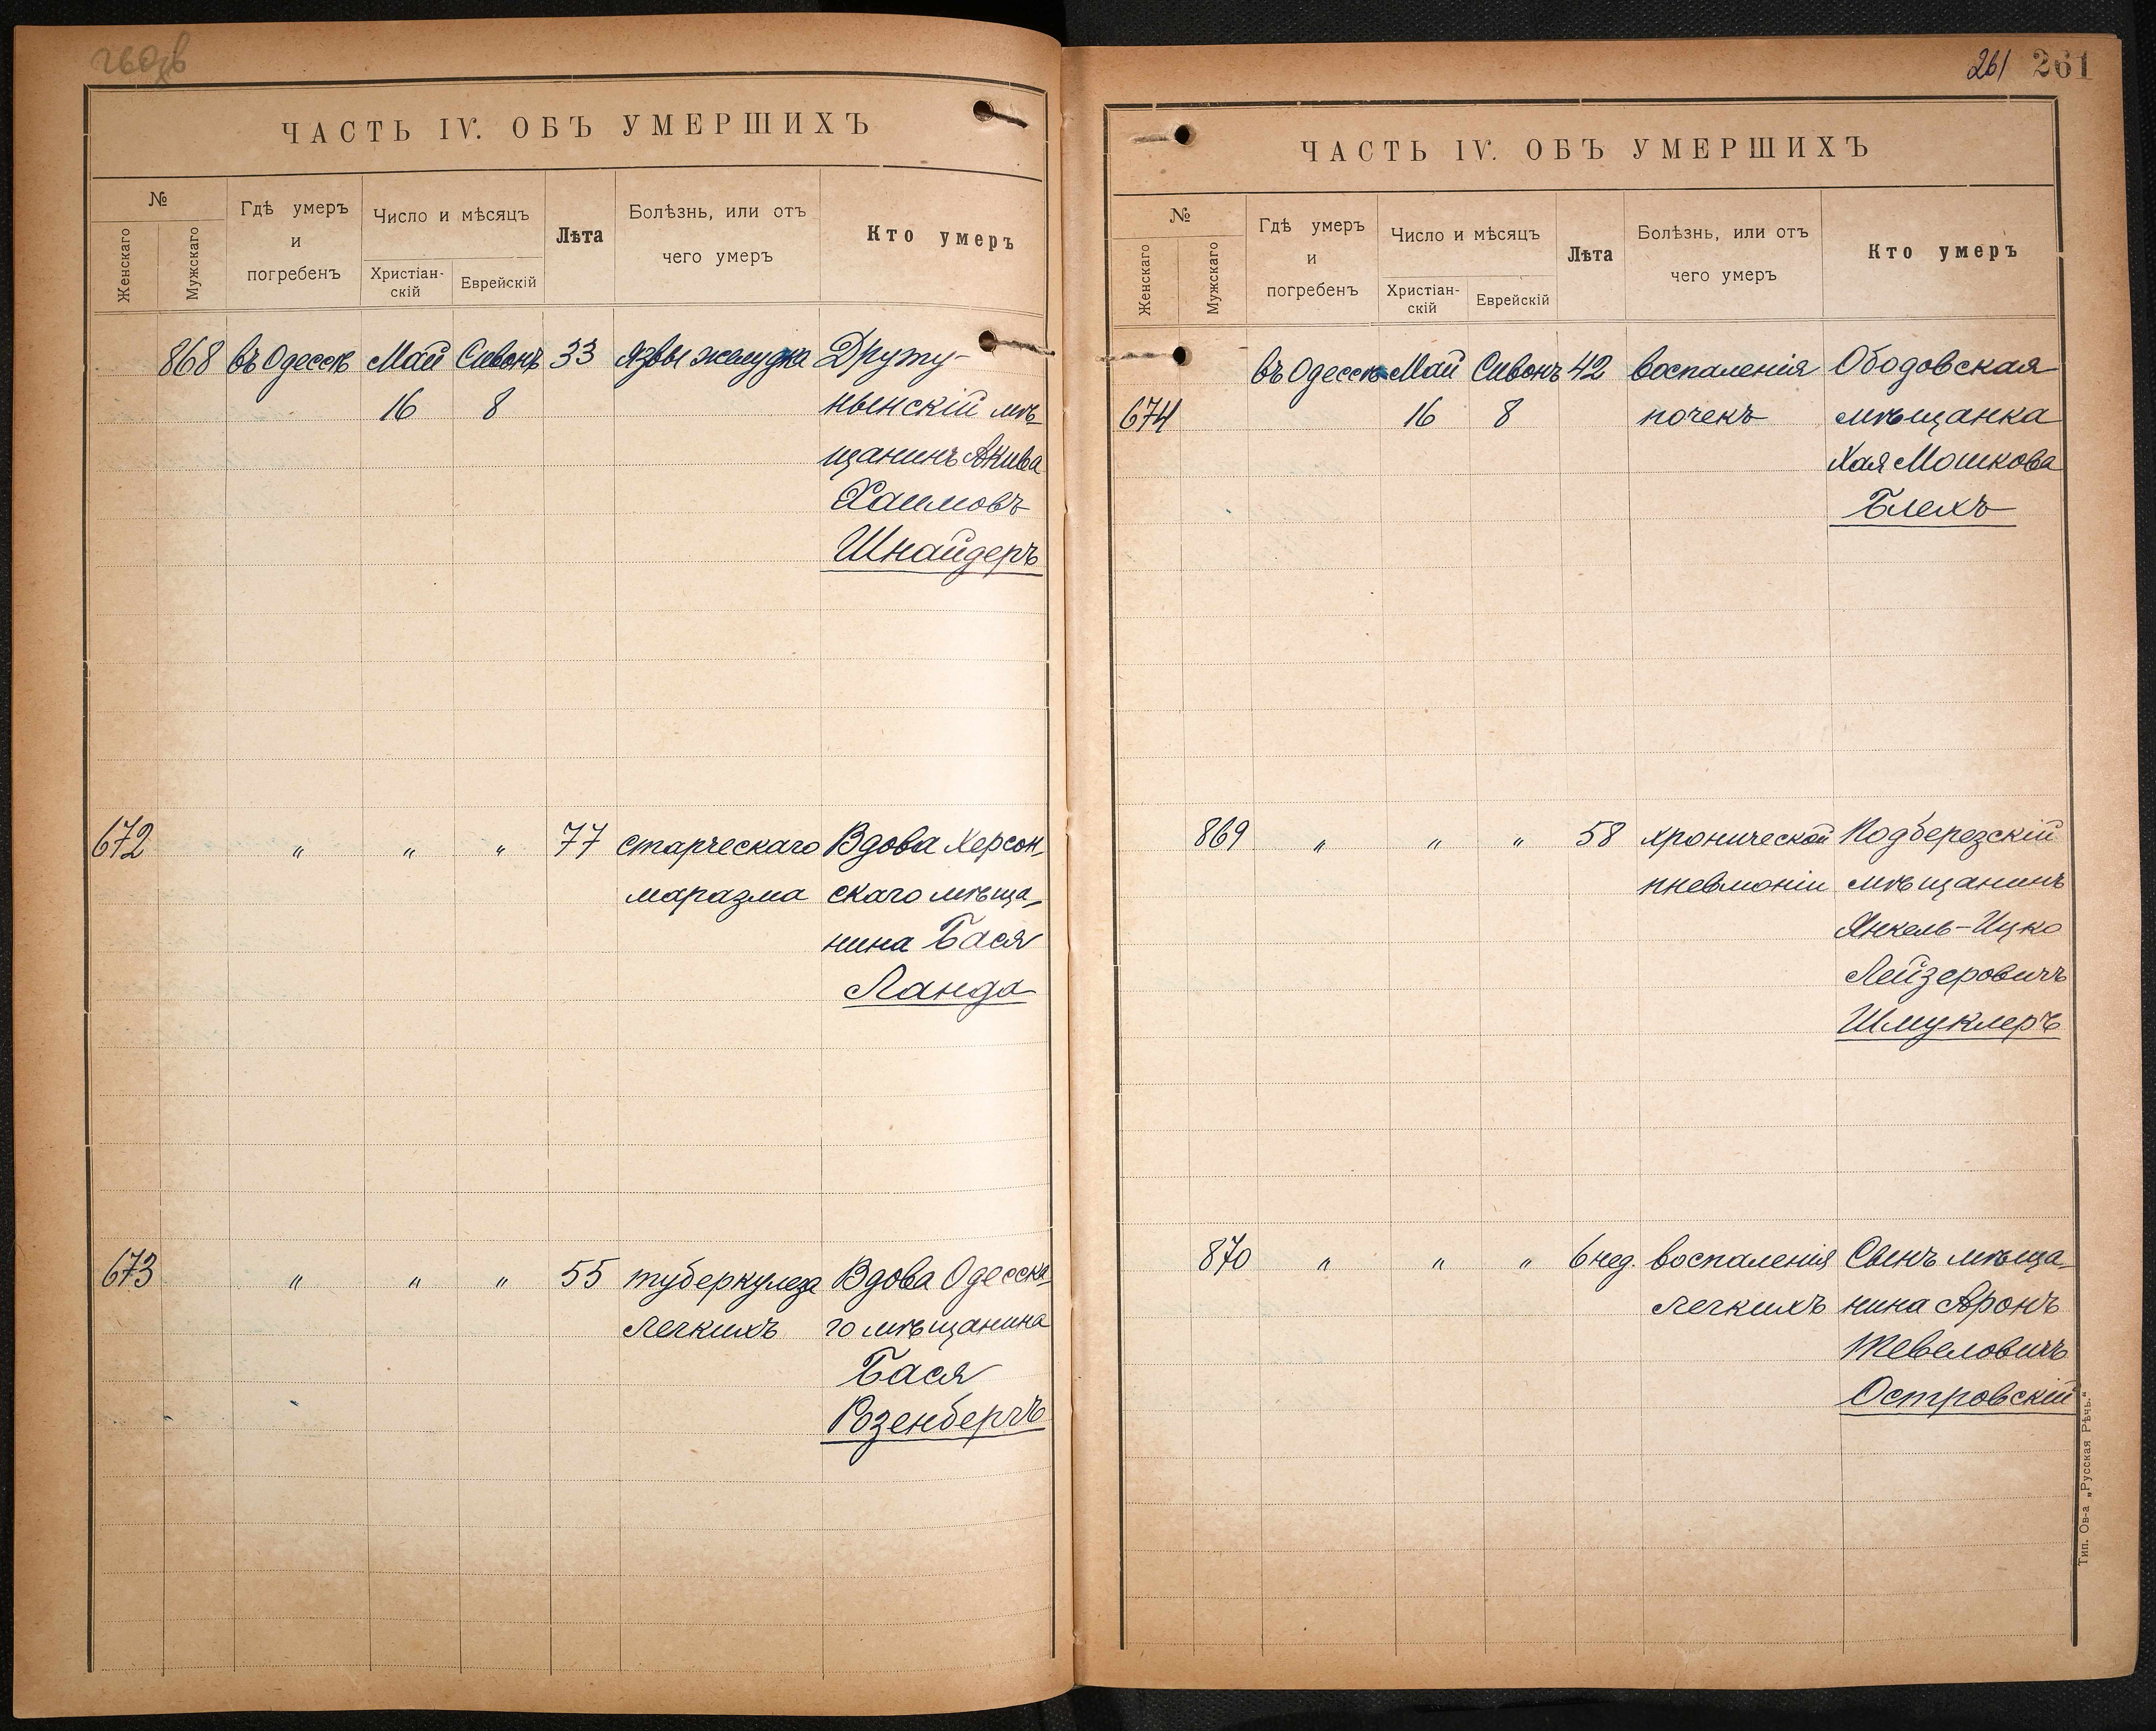 260 об
ЧАСТЬ IV. ОБЪ УМЕРШИХЪ
№
Женскаго
Мужскаго
Гдѣ умеръ
и
погребенъ
Число и мѣсяцъ
Христіан-
скій
Еврейскій
Лѣта
Болѣзнь, или отъ
чего умеръ
Кто умеръ
868 въ Одессѣ Май Сивонъ 33 язвы желудка Друту-
16 8 ньенскій мѣ-
щанинъ Акива
Хаимовъ
Шнайдеръ
672 " " " 77 старческаго Вдова Херсон-
маразма скаго мѣща-
нина Бася
Ланда
673 " " " 55 туберкулеза Вдова Одесска-
легкихъ го мѣщанина
Бася
Розенбергъ
261 261
ЧАСТЬ IV. ОБЪ УМЕРШИХЪ
№
Женскаго
Мужскаго
Гдѣ умеръ
и
погребенъ
Число и мѣсяцъ
Христіан-
скій
Еврейскій
Лѣта
Болѣзнь, или отъ
чего умеръ
Кто умеръ
въ Одессѣ Май Сивонъ 42 воспаленія Ободовская
674 16 8 почекъ мѣщанка
Хая Мошкова
Блехъ
869 " " " 58 хронической Подберезскій
пневмоніи мѣщанинъ
Янкель-Ицко
Лейзеровичъ
Шмуклеръ
870 " " " 6 нед. воспаленія Сынъ мѣща-
легкихъ нина Аронъ
Тевеловичъ
Островскій
Тип. Ов-а „Русская Рѣчь."